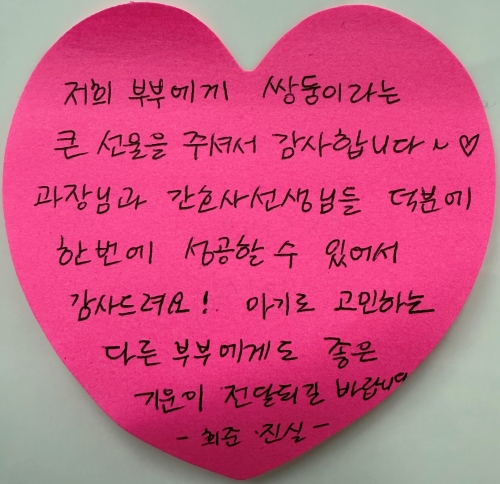 저희 부부에게 쌍둥이라는
큰 선물을 주셔서 감사합니다~♡
과장님과 간호사선생님들 덕분에
한번에 성공할 수 있어서
감사드려요! 아기로 고민하는
다른 부부에게도 좋은
기운이 전달되길 바랍니다
- 최준·진실 -